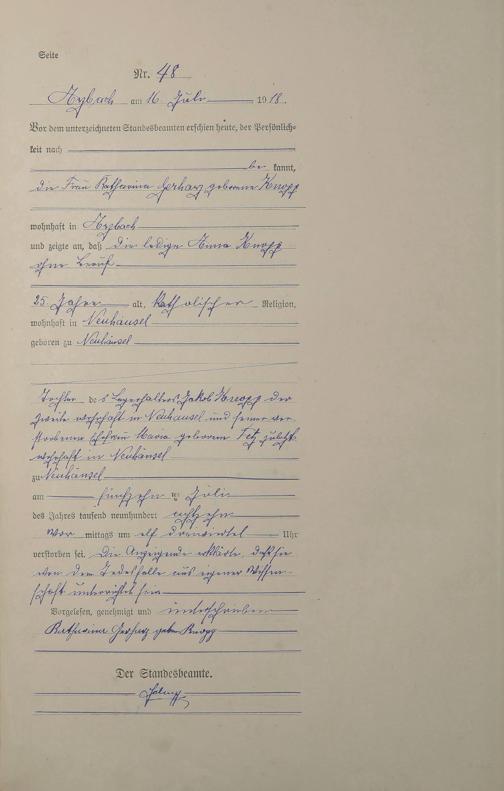 Seite
Nr. 48
Arzbach am 16 Juli 1918.
Vor dem unterzeichneten Standesbeamten erschien heute, der Persönlich-
keit nach
be kannt,
die Frau Katharina Gerharz geborene Knopp
wohnhaft in Arzbach
und zeigte an, daß die ledige Anna Knopp
ohne Beruf
25 Jahre alt, katholischer Religion,
wohnhaft in Neuhäusel
geboren zu Neuhäusel
Tochter des Lagerhalters Jakob Knopp der
Zweite wohnhaft in Neuhäusel und seiner ver-
storbenen Ehefrau Maria geborene zuletzt
wohnhaft in Neuhäusel
zu Neuhäusel
am fünfzehn ten Juli
des Jahres tausend neunhundert achtzehn
vor mittags um elf dreiviertel Uhr
verstorben sei. Die Anzeigende erklärte, daß sie
von dem Todesfalle aus eigener Wissen-
schaft unterrichtet sei.
Vorgelesen, genehmigt und unterschrieben
Katharina Gerharz geb. Knopp
Der Standesbeamte.